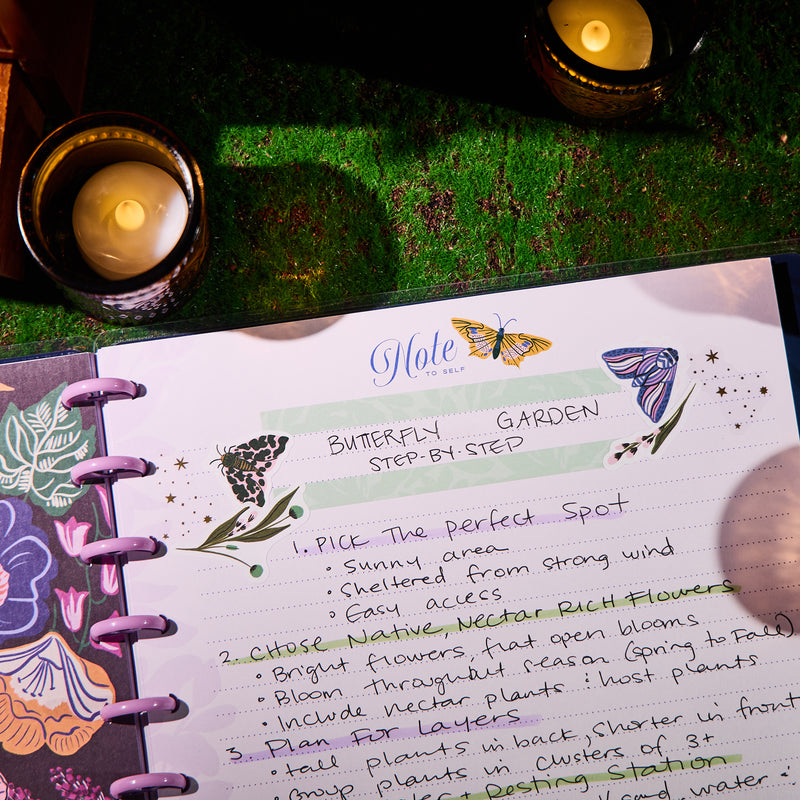 Note
TO SELF
BUTTERFLY GARDEN
STEP-BY-STEP
1. PICK THE perfect SPOT
• Sunny area
• Sheltered from strong wind
• Easy access
2. CHOSE Native, Nectar RICH Flowers
• Bright flowers, flat open blooms
• Bloom throughout season (Spring to Fall)
• Include nectar plants : host plants
3. Plan For Layers
• tall plants in back, shorter in front
• Group plants in clusters of 3+
+ Resting Station
sand water :